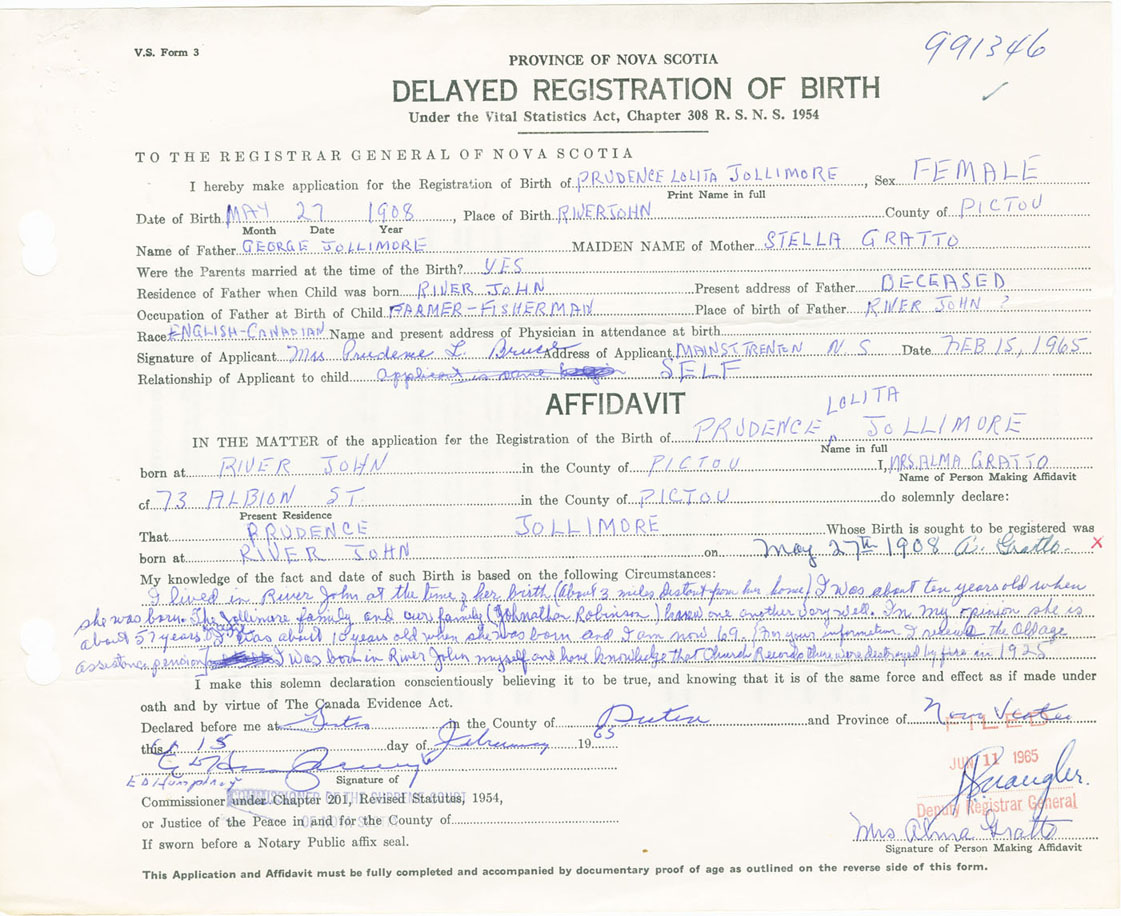 V.S. Form 3
991346
PROVINCE OF NOVA SCOTIA
DELAYED REGISTRATION OF BIRTH
Under the Vital Statistics Act, Chapter 308 R. S. N. S. 1954
TO THE REGISTRAR GENERAL OF NOVA SCOTIA
I hereby make application for the Registration of Birth of PRUDENCE LOLITA JOLLIMORE, Sex FEMALE
Print Name in full
Date of Birth MAY 27 1908, Place of Birth RIVER JOHN County of PICTOU
Month Date Year
Name of Father GEORGE JOLLIMORE MAIDEN NAME of Mother STELLA GRATTO
Were the Parents married at the time of the Birth? YES
Residence of Father when Child was born RIVER JOHN Present address of Father DECEASED
Occupation of Father at Birth of Child FARMER-FISHERMAN Place of birth of Father RIVER JOHN ?
Race ENGLISH-CANADIAN Name and present address of Physician in attendance at birth
Signature of Applicant Mrs Prudence L. Bruce Address of Applicant MAIN ST TRENTON N. S Date FEB 15, 1965
Relationship of Applicant to child applicant is same SELF
AFFIDAVIT
LOLITA
IN THE MATTER of the application for the Registration of the Birth of PRUDENCE JOLLIMORE
Name in full
born at RIVER JOHN in the County of PICTOU I, MRS. ALMA GRATTO
Name of Person Making Affidavit
of 73 ALBION ST. in the County of PICTOU do solemnly declare:
Present Residence
That PRUDENCE JOLLIMORE Whose Birth is sought to be registered was
born at RIVER JOHN on May 27th 1908 A. Gratto. X
My knowledge of the fact and date of such Birth is based on the following Circumstances:
I lived in River John at the time of her birth (about 3 miles distant from her home) I was about ten years old when
she was born. The Jollimore family and our family (Johnathan Robinson) knew one another very well. In my opinion she is
about 57 years I was about 10 years old when she was born and I am now 69. (For your information I receive the Old age
assistance pension) I was born in River John myself and have knowledge that Church Records there were destroyed by fire in 1925
I make this solemn declaration conscientiously believing it to be true, and knowing that it is of the same force and effect as if made under
oath and by virtue of The Canada Evidence Act.
Declared before me at in the County of Pictou and Province of Nova Scotia
this 15 day of February 19 65
FILED
JUN 11 1965
Signature of
E D Humphrey
COMMISSIONER OF THE SUPREME COURT
Commissioner under Chapter 201, Revised Statutes, 1954,
Deputy Registrar General
or Justice of the Peace in and for the County of
Mrs Alma Gratto
If sworn before a Notary Public affix seal.
Signature of Person Making Affidavit
This Application and Affidavit must be fully completed and accompanied by documentary proof of age as outlined on the reverse side of this form.